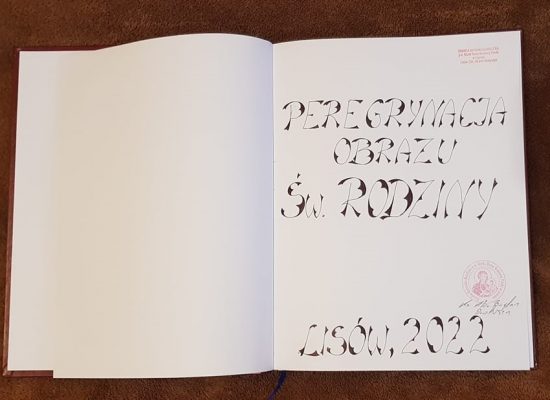 PEREGRYNACJA
OBRAZU
ŚW. RODZINY
LISÓW, 2022